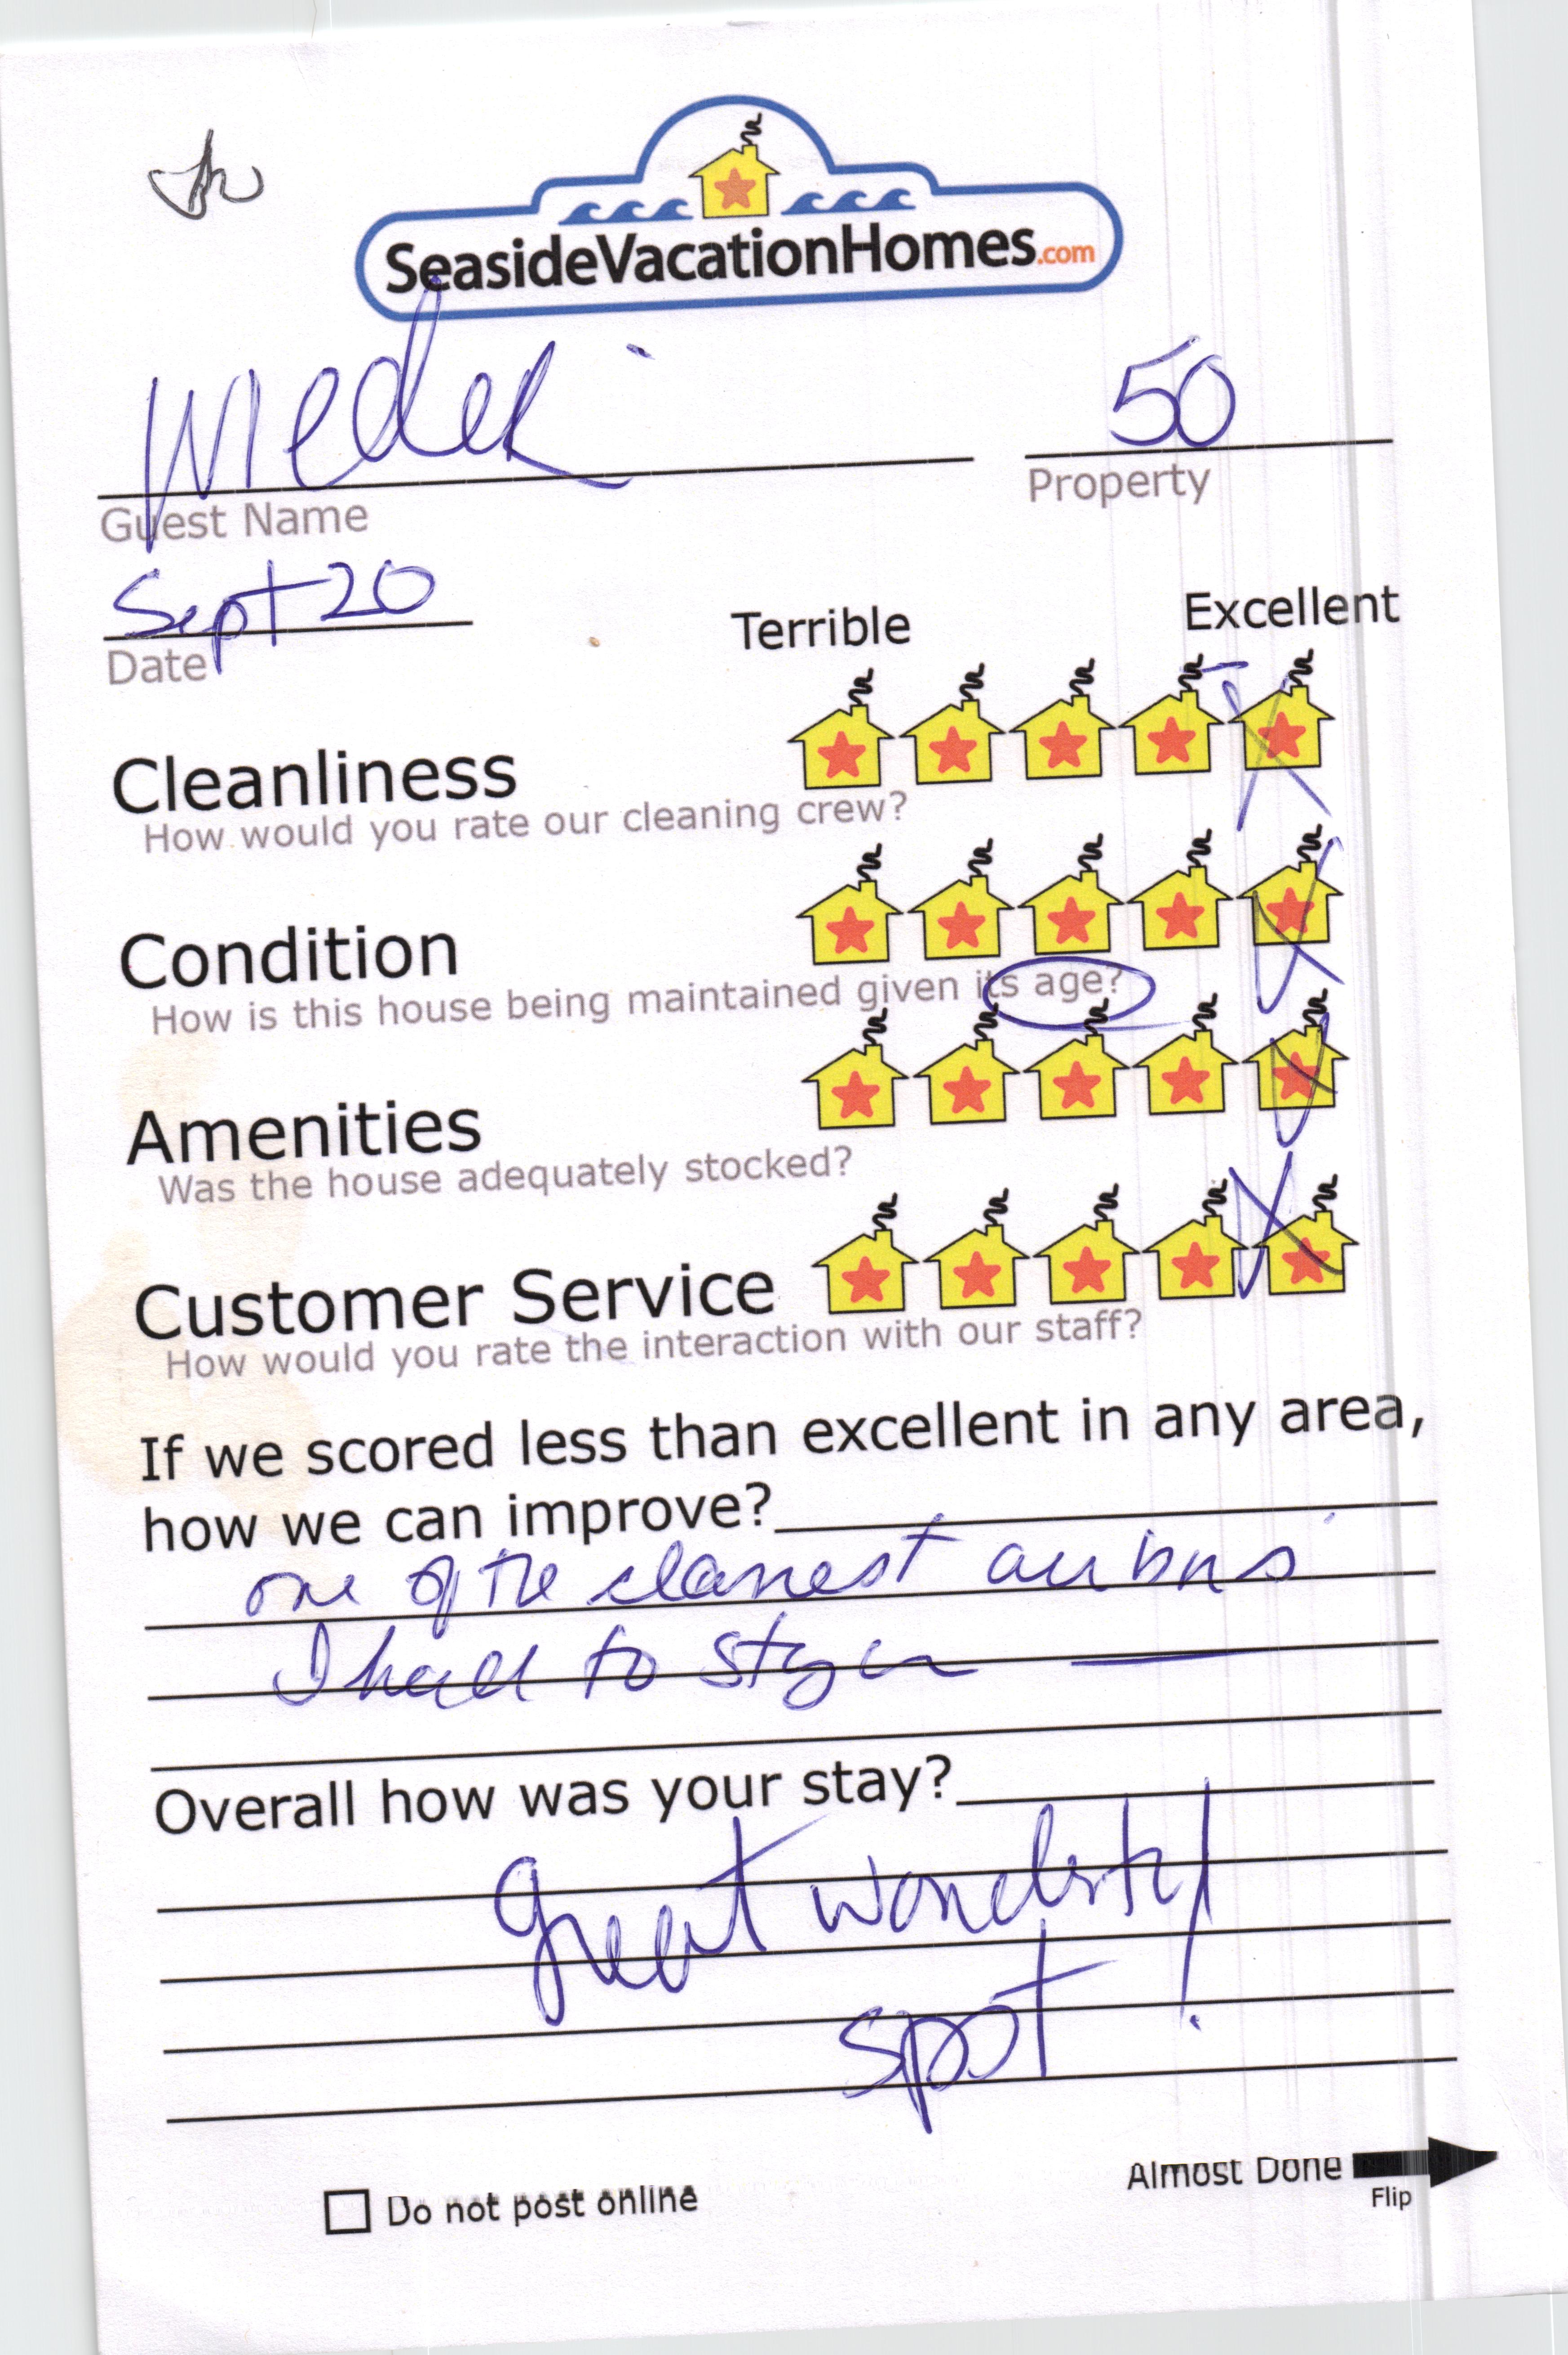 SeasideVacationHomes.com
50
Guest Name
Property
Sept 20
Date
Terrible
Excellent
Cleanliness
How would you rate our cleaning crew?
Condition
How is this house being maintained given its age?
Amenities
Was the house adequately stocked?
Customer Service
How would you rate the interaction with our staff?
If we scored less than excellent in any area,
how we can improve?
one of the
I had to stay in
Overall how was your stay?
Great
spot
Do not post online
Almost Done
Flip